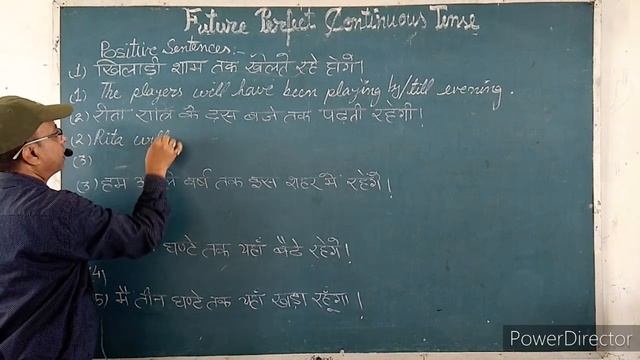 Future Perfect Continuous Tense
Positive Sentences:-
(1) खिलाड़ी शाम तक खेलते रहे होंगे।
(1) The players will have been playing by/till evening.
(2) रीता रात के दस बजे तक पढ़ती रहेगी।
(2) Rita will
(3)
(3) हम वर्ष तक इस शहर में रहेंगे।
घण्टे तक यहाँ बैठे रहेंगे।
4)
5) मैं तीन घण्टे तक यहाँ खड़ा रहूँगा।
PowerDirector